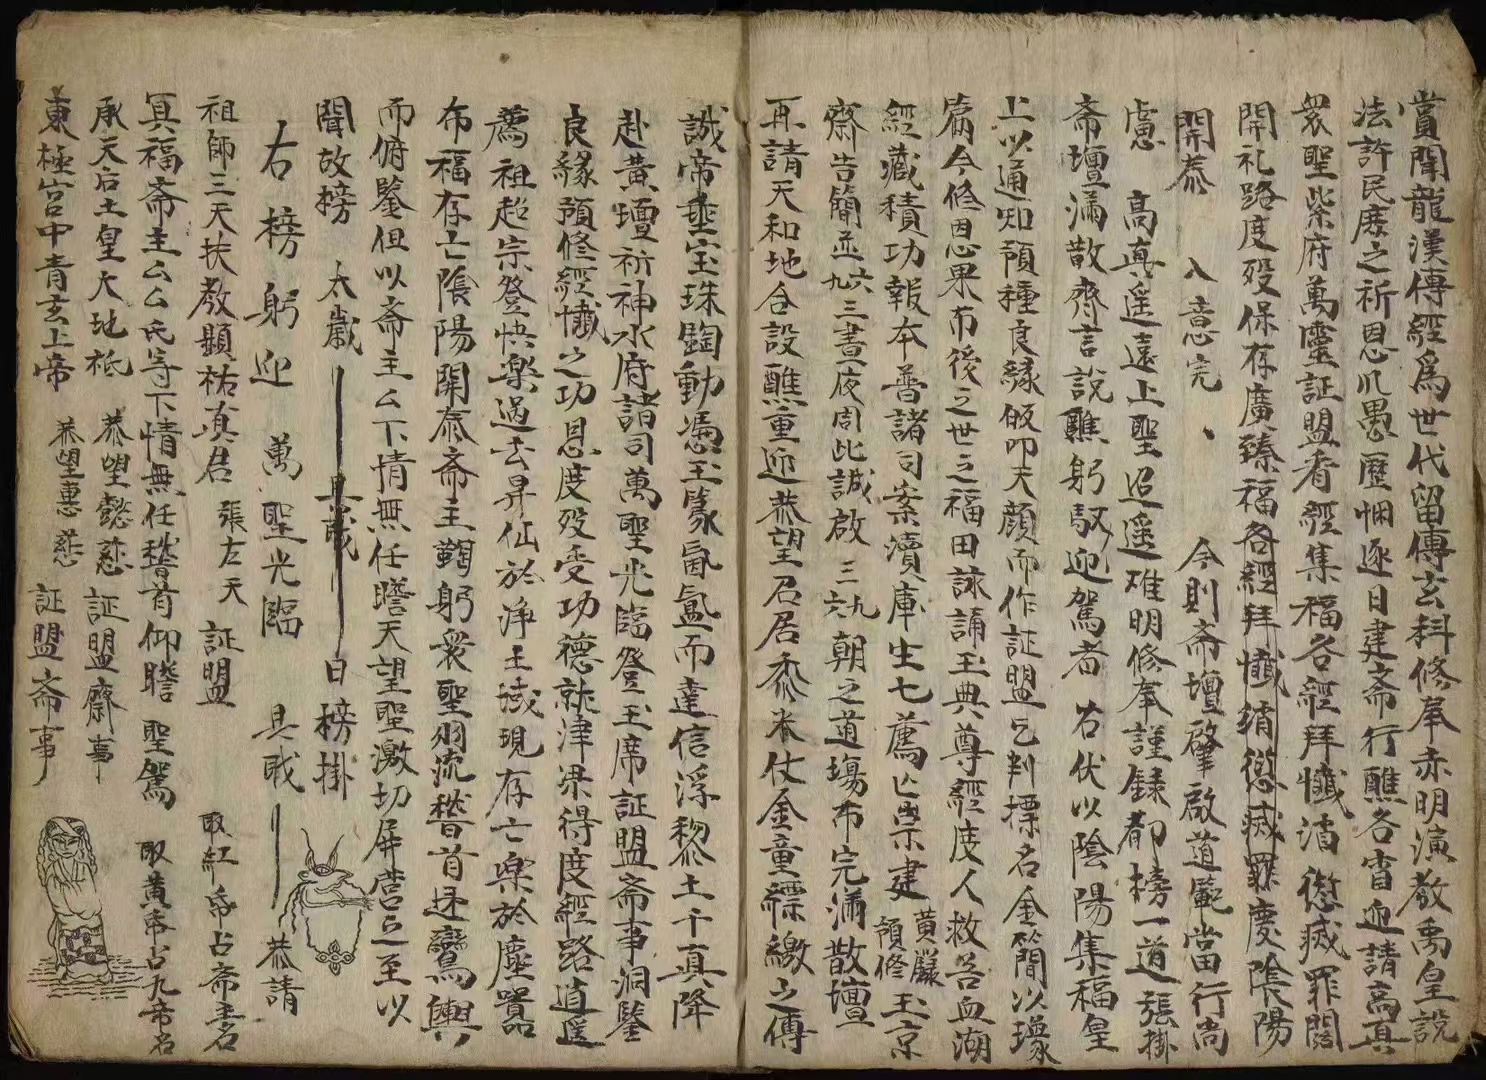 嘗聞龍漢傳經爲世代留傳玄科修奉赤明演教禹皇說
法許民庶之祈恩凡愚歷悃逐日建斋行醮各宵迎請高真
衆聖紫府萬靈証盟看經集福各經拜懺消愆滅罪開
開礼路度殁保存廣臻福各經拜懺消愆滅罪慶陰陽
開泰 入意完、 今則斋壇肇啟道範當行尚
慮 高真遥遠上聖迢遥难明修奉謹録都榜一道張掛
斋壇滿散齊言說醮躬馭迎駕者 右伏以陰陽集福皇
上以通知預種良緣皈叩天顔而作証盟乞判標名金簡以
篇今修因果布後之世之福田詠誦玉典尊經度人救苦血湖
經藏積功報本普諸司案瀆庫生七薦亡崇建黄籙預修玉京
齋告簡並九六三晝夜周比誠啟三六九朝之道場布完滿散壇
再請天和地合設醮重迎恭望君居黍米仗金童縹緲之傳
誠帝垂宝珠鉤動憑玉篆氤氳而達信浮黎土千真降
赴黄壇祈神水府諸司萬聖光臨登玉席証盟斋事洞鑒
良緣預修經懺之功恩度殁受功德就津梁得度經路逍遥
薦祖超宗登快樂過去昇仙於净土域現存亡樂於塵嚣
布福存亡陰陽開泰斋主鞠躬衆聖羽流稽首迓鸞輿
而俯鑒但以斋主厶下情無任瞻天望聖激切屏营之至以
聞故榜 太歲 具職 日榜掛
右榜躬迎 萬聖光臨 具职 恭請
祖師三天扶教顯祐真君 張左天 証盟 取紅帋占斋主名
冥福斋主厶厶氏等下情無任稽首仰瞻聖駕 取黄帋占九帝名
承天后土皇大地祗 恭望懿慈 証盟齋事
東極宫中青玄上帝 恭望惠慈 証盟斋事